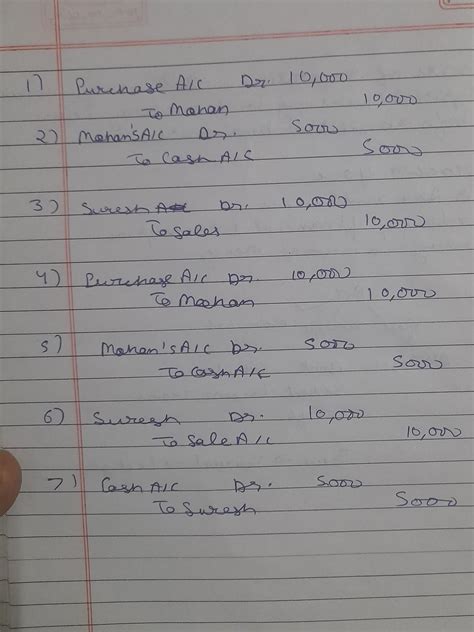 1) Purchase A/c Dr. 10,000
To Mohan 10,000
2) Mohan's A/c Dr. 5000
To Cash A/c 5000
3) Suresh Dr. 10,000
To Sales 10,000
4) Purchase A/c Dr 10,000
To Mohan 10,000
5) Mohan's A/c Dr. 5000
To Cash A/c 5000
6) Suresh Dr. 10,000
To Sale A/c 10,000
7) Cash A/c Dr. 5000
To Suresh 5000